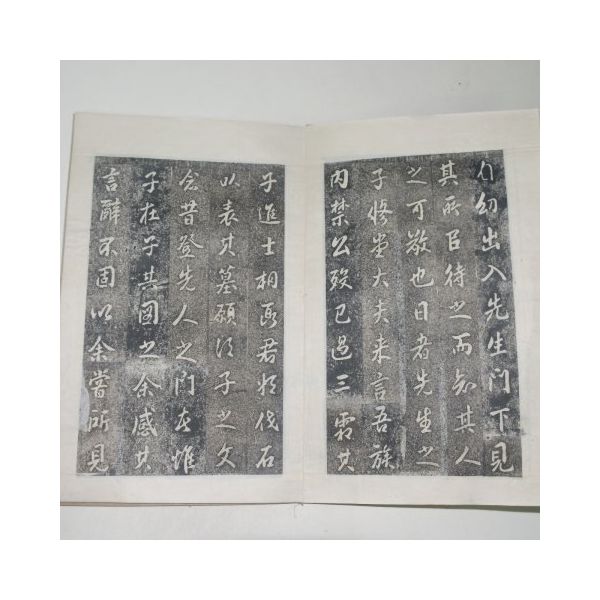 自幼出入先生門下見
其所㠯待之而知其人
之可敬也日者先生之
子脩堂大夫来言吾族
内禁公歿已過三霜其
子進士相夏君将伐石
以表其墓願得子之文
念昔登先人之門者惟
子在子其圖之余感其
言辭不固以余嘗所見